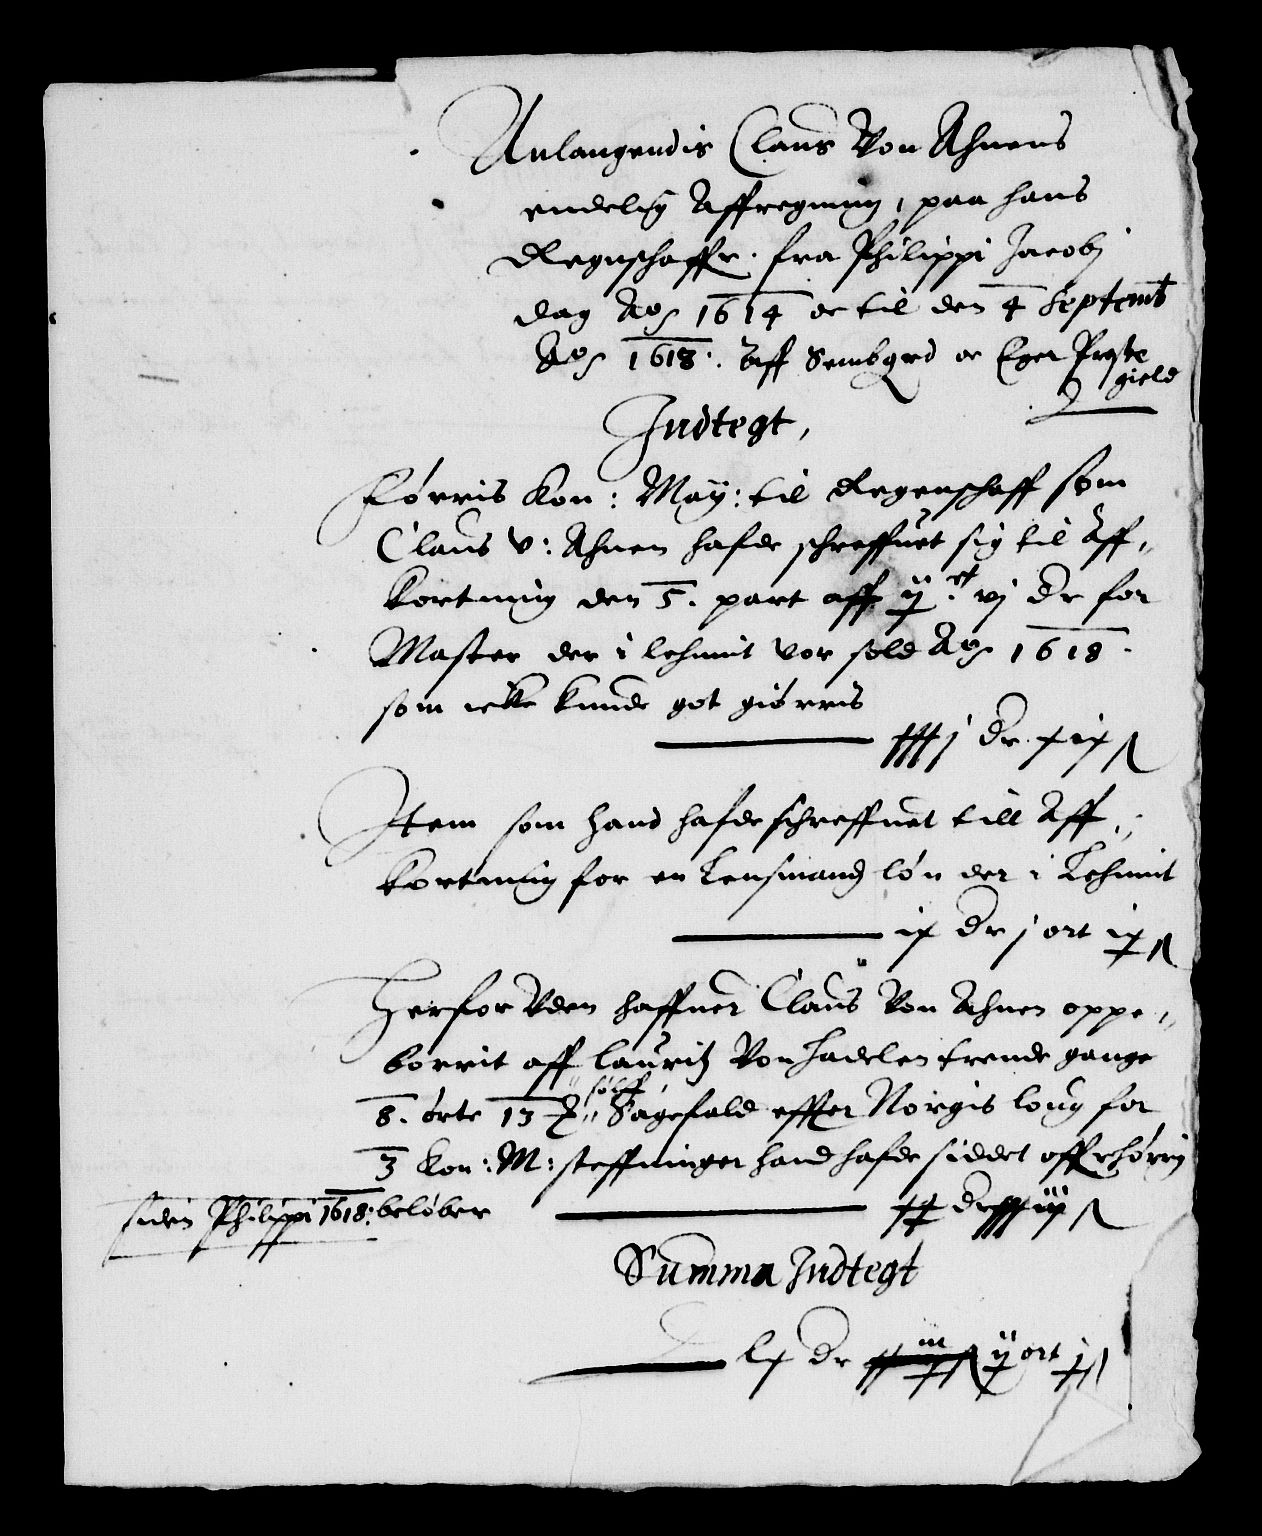 Anlangendis Claus Von Ahnens
endelig Affregning, paa hans
Regnschaffr. fra Philippi Jacobj
dag Ao 1614 oc til den 4 Septemb
Ao 1618. Aff Sembgrd oc Eger Preste
gield
Indtegt,
Førris Kon: May: til Regenschaff som
Claus v: Ahnen hafde schreffuet sig til Aff,,
kortning den 5. part aff vj dr for
Master der i lehnnit vor sold Ao 1618.
som icke kunde got giørris
xxxj dr. xix ß
Item som hand hafde schreffuet till Aff,,
kortning for en Lensmandz løn der i Lehnnit
ix dr j ort ß
Herfor Uden haffuer Claus Von Ahnen oppe,,
borrit aff lauritz Von Hadelen trende gange
8. ørte 13 sølff Sagefald effter Norgis loug for
3 Kon: M: steffninger hand hafde siddet offrhørrig
siden Philippi 1618: beløber
xx dr ß
Summa Indtegt
lx dr ij ort ß